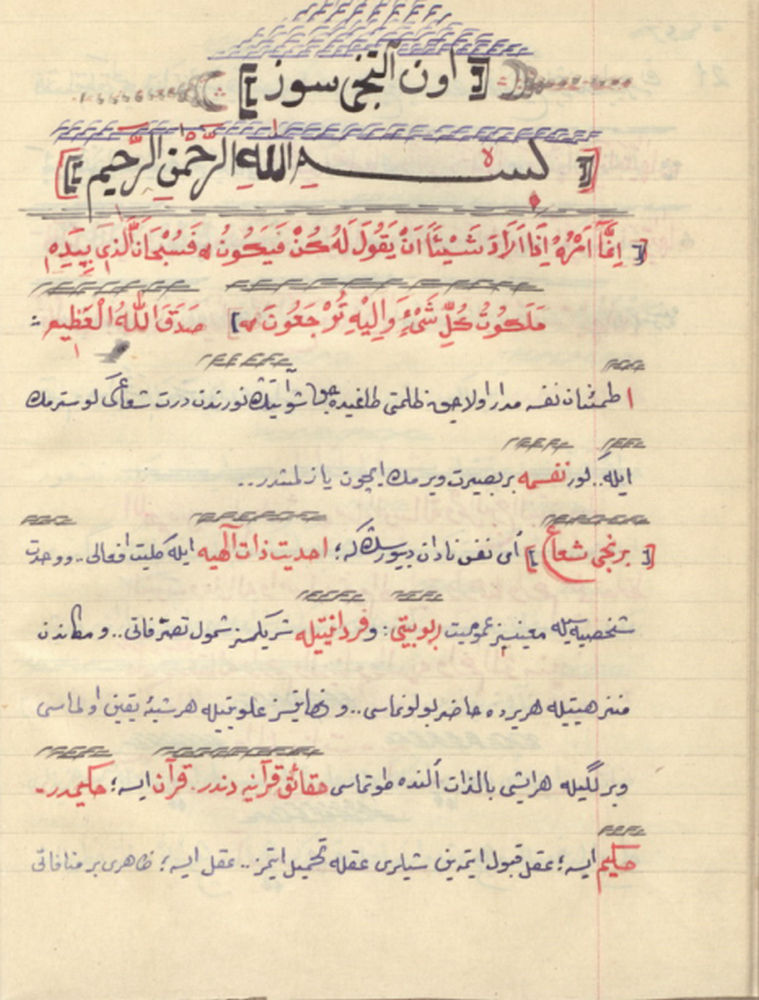 [ اون آلتنجی سوز ]
[ بســـمِ اللهِ الرَّحْمٰنِ الرَّحِيمِ ]
[ اِنَّمَٓا اَمْرُهُٓ اِذَٓا اَرَادَ شَيْئًا اَنْ يَقُولَ لَهُ كُنْ فَيَكُونُ ۝ فَسُبْحَانَ الَّذِى بِيَدِهِ
مَلَكُوتُ كُلِّ شَىْءٍ وَاِلَيْهِ تُرْجَعُونَ ۝ ] صَدَقَ اللهُ الْعَظِيم :
اطمئنان نفسه مدار اولاجق ظلمتی طاغیده جق شو آیتڭ نورندن درت شعاعی گوسترمك
ایله.. كور نفسمه بر بصیرت ویرمك ایچون یازلمشدر..
[ برنجی شعاع ] أی نفس نادان دیورسڭ كه؛ احدیت ذات آلهیه ایله كلیت افعالی.. و وحدت
شخصیه سیله معینسز عمومیت ربوبیتی: و فردانیتیله شریكسز شمول تصرفاتی.. و مكاندن
منزهیتیله هر یرده حاضر بولونماسی.. و نهایتسز علویتیله هر شیئه یقین اولماسی
و بر لگیله هر ایشی بالذات ألنده طوتماسی حقائق قرآنیه دندر. قرآن ایسه؛ حكیمدر.-
حكیم ایسه؛ عقل قبول ایتمه ین شیلری عقله تحمیل ایتمز.. عقل ایسه؛ ظاهری بر منافاتی